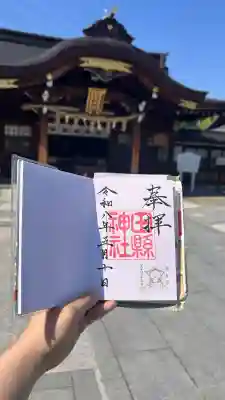 奉拝
田縣
神社
令和八年五月十日